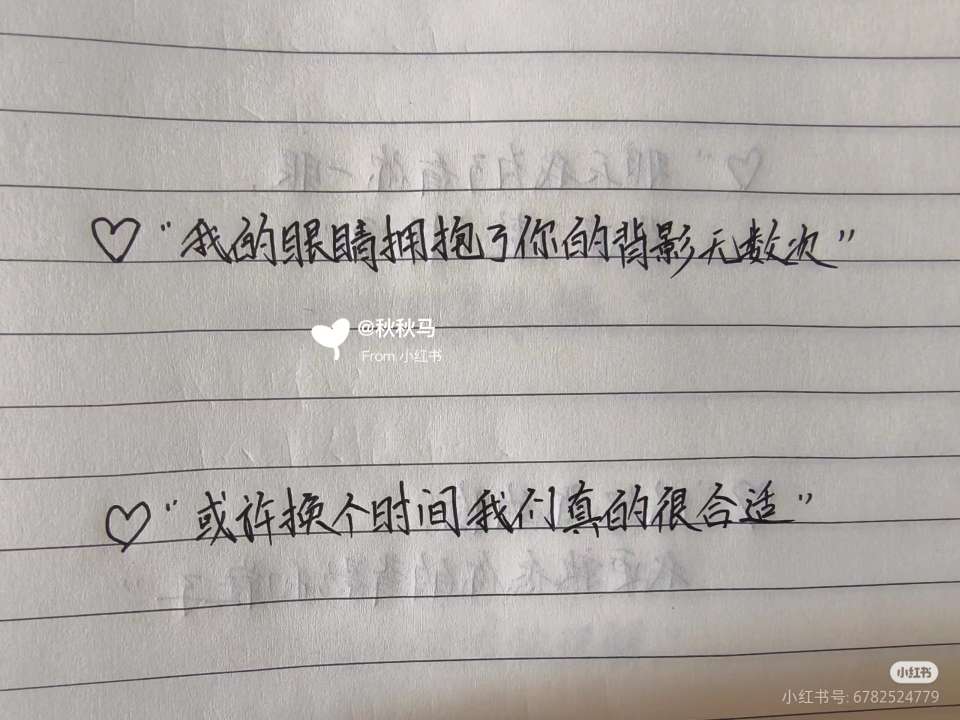 ♡“我的眼睛拥抱了你的背影无数次”
@秋秋马
From 小红书
♡“或许换个时间我们真的很合适”
小红书
小红书号: 6782524779